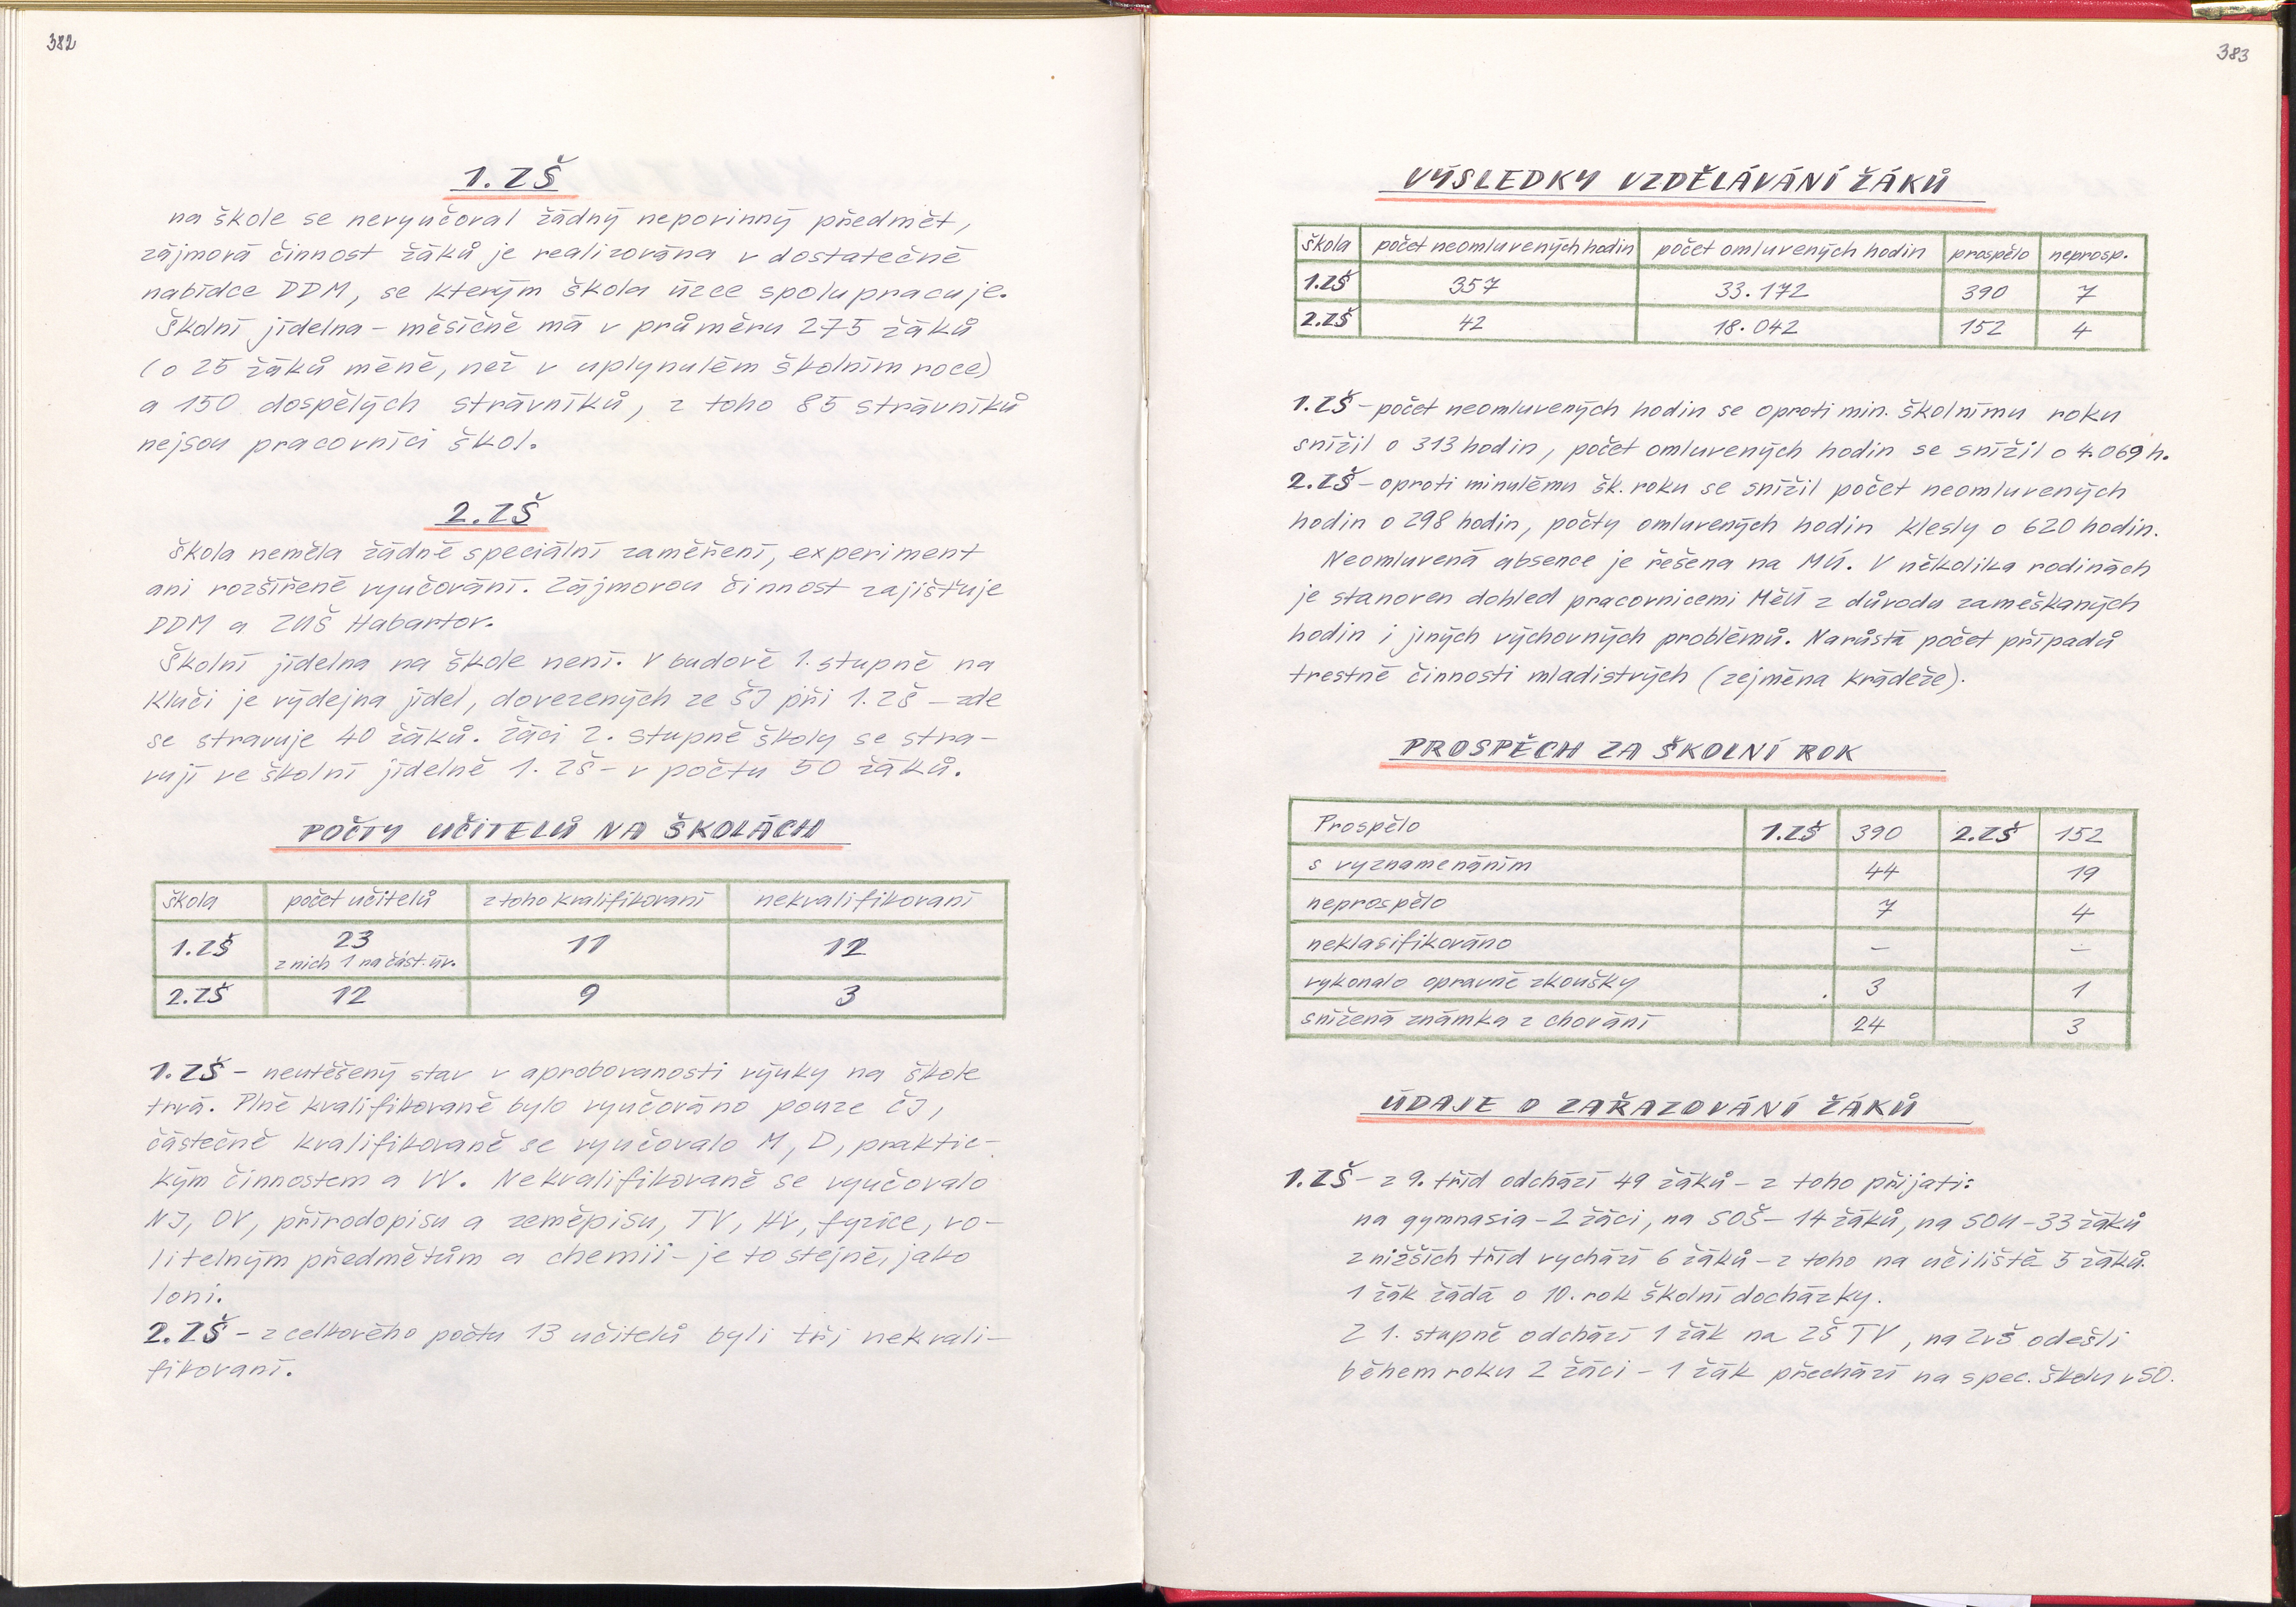 382
1. ZŠ
na škole se nevyučoval žádný nepovinný předmět,
zájmová činnost žáků je realizována v dostatečné
nabídce DDM, se kterým škola úzce spolupracuje.
Školní jídelna - měsíčně má v průměru 275 žáků
(o 25 žáků méně, než v uplynulém školním roce)
a 150 dospělých strávníků, z toho 85 strávníků
nejsou pracovníci škol.
2. ZŠ
Škola neměla žádné speciální zaměření, experiment
ani rozšířené vyučování. Zájmovou činnost zajišťuje
DDM a ZUŠ Habartov.
Školní jídelna na škole není. V budově 1. stupně na
Kluči je výdejna jídel, dovezených ze ŠJ při 1. ZŠ - zde
se stravuje 40 žáků. Žáci 2. stupně školy se stra-
vují ve školní jídelně 1. ZŠ - v počtu 50 žáků.
POČTY UČITELŮ NA ŠKOLÁCH
škola počet učitelů z toho kvalifikovaní nekvalifikovaní
1. ZŠ 23 11 12
z nich 1 na část. úv.
2. ZŠ 12 9 3
1. ZŠ - neutěšený stav v aprobovanosti výuky na škole
trvá. Plně kvalifikovaně bylo vyučováno pouze ČJ,
částečně kvalifikovaně se vyučovalo M, D, praktic-
kým činnostem a VV. Nekvalifikovaně se vyučovalo
NJ, OV, přírodopisu a zeměpisu, TV, HV, fyzice, vo-
litelným předmětům a chemii - je to stejné, jako
loni.
2. ZŠ - z celkového počtu 13 učitelů byli tři nekvali-
fikovaní.
383
VÝSLEDKY VZDĚLÁVÁNÍ ŽÁKŮ
škola počet neomluvených hodin počet omluvených hodin prospělo neprosp.
1. ZŠ 357 33.172 390 7
2. ZŠ 42 18.042 152 4
1. ZŠ - počet neomluvených hodin se oproti min. školnímu roku
snížil o 313 hodin, počet omluvených hodin se snížil o 4.069 h.
2. ZŠ - oproti minulému šk. roku se snížil počet neomluvených
hodin o 298 hodin, počty omluvených hodin klesly o 620 hodin.
Neomluvená absence je řešena na MÚ. V několika rodinách
je stanoven dohled pracovnicemi MěÚ z důvodu zameškaných
hodin i jiných výchovných problémů. Narůstá počet případů
trestné činnosti mladistvých (zejména krádeže).
PROSPĚCH ZA ŠKOLNÍ ROK
Prospělo 1. ZŠ 390 2. ZŠ 152
s vyznamenáním 44 19
neprospělo 7 4
neklasifikováno - -
vykonalo opravné zkoušky 3 1
snížená známka z chování 24 3
ÚDAJE O ZAŘAZOVÁNÍ ŽÁKŮ
1. ZŠ - z 9. tříd odchází 49 žáků - z toho přijati:
na gymnasia - 2 žáci, na SOŠ - 14 žáků, na SOU - 33 žáků
z nižších tříd vychází 6 žáků - z toho na učiliště 5 žáků.
1 žák žádá o 10. rok školní docházky.
Z 1. stupně odchází 1 žák na ZŠ TV, na ZvŠ odešli
během roku 2 žáci - 1 žák přechází na spec. školu v SO.